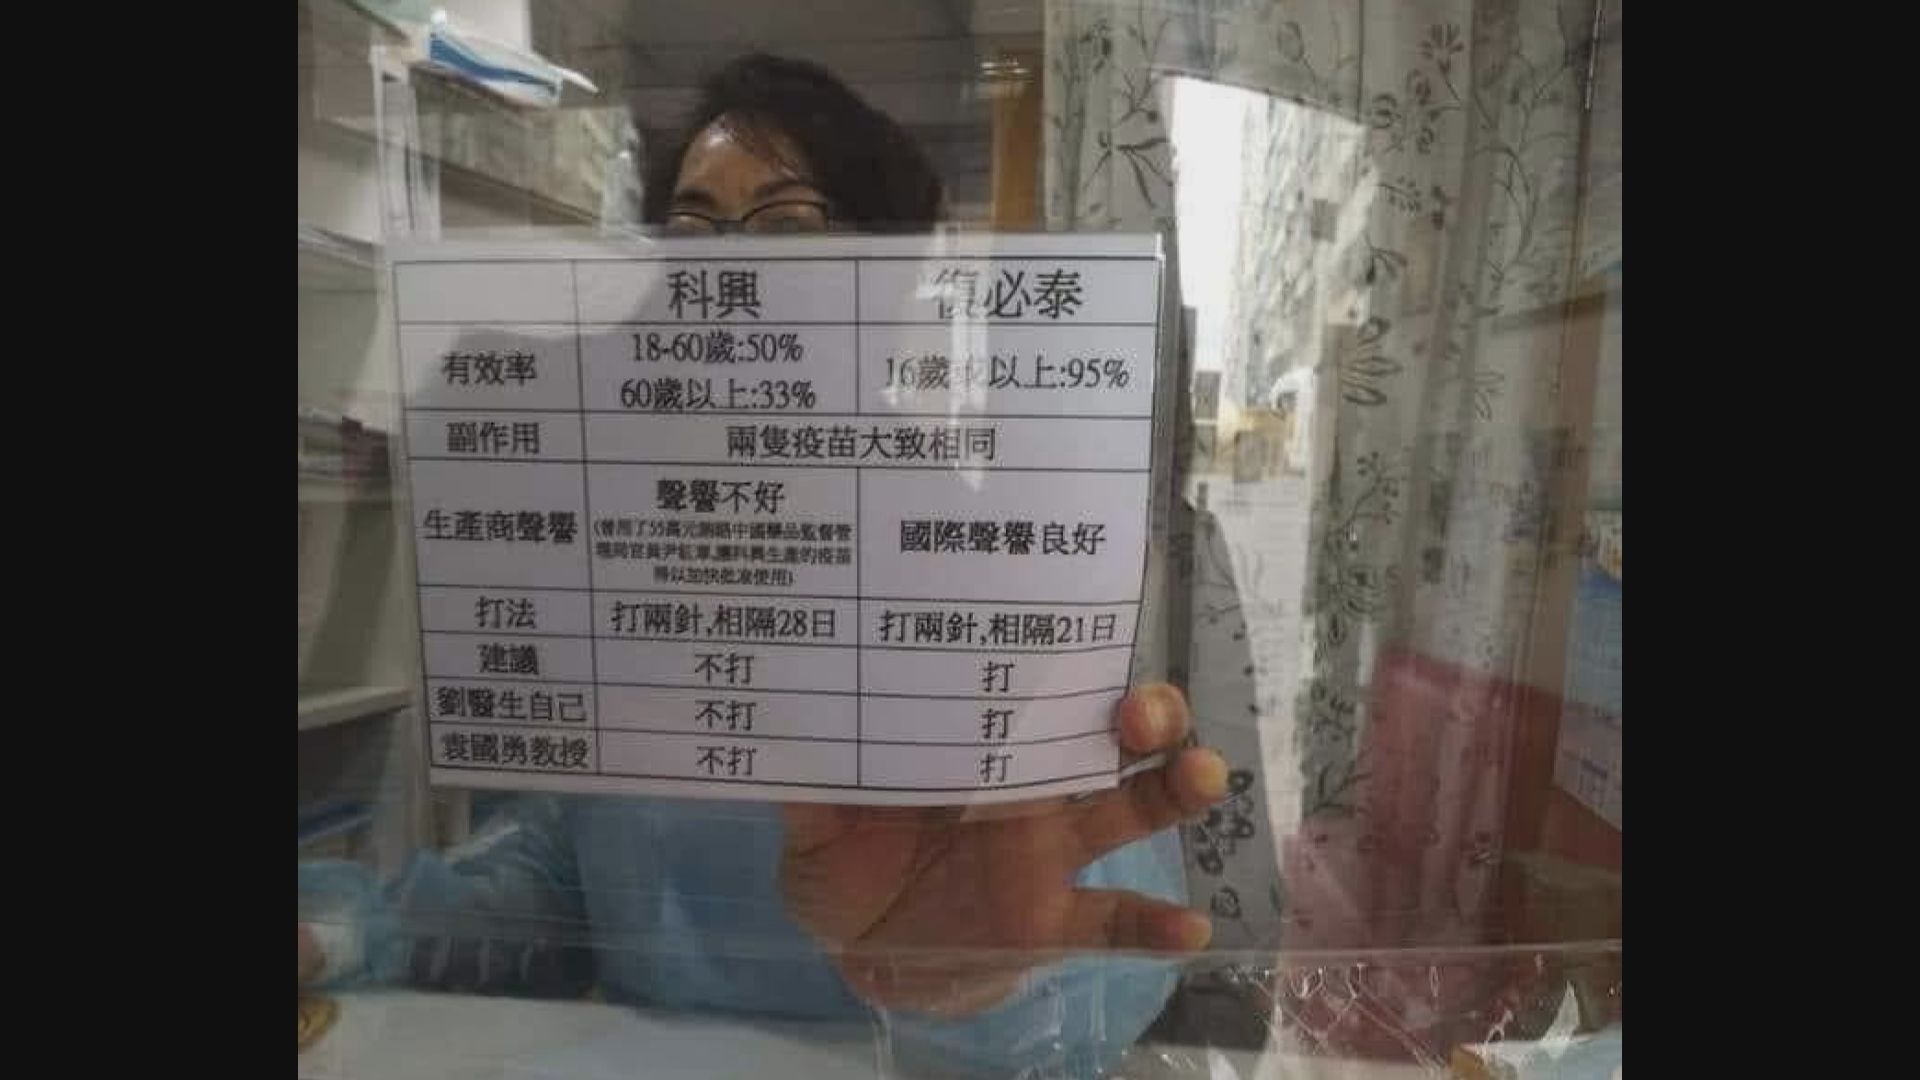 科興 復必泰
有效率 18-60歲:50% 60歲以上:33% 16歲或以上:95%
副作用 兩隻疫苗大致相同
生產商聲譽 聲譽不好 國際聲譽良好
(曾用了55萬元賄賂中國藥品監督管
理局官員尹紅章,讓科興生產的疫苗
得以加快批准使用)
打法 打兩針,相隔28日 打兩針,相隔21日
建議 不打 打
劉醫生自己 不打 打
袁國勇教授 不打 打